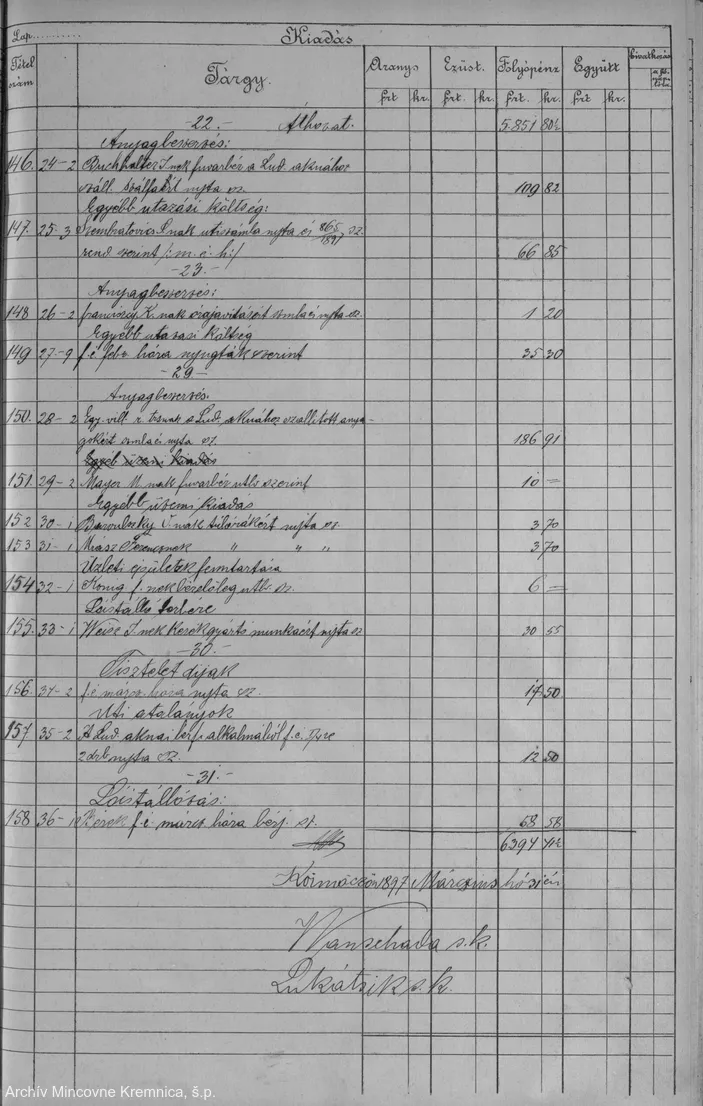 Lap
Kiadás
Tétel szám
Tárgy.
Aranys
Ezüst.
Folyópénz
Együtt
Hivatkozás
frt kr. frt kr. frt. kr. frt kr.
-22.- Áthozat. 5.851 80½
Anyagbeszerzés:
146. 24-2 Buchhalter I.nek fuvarbér a Lud. aknához
száll. szálfákért nyta sz. 109 82
Egyébb utazási költség:
147. 25-3 nak utiszámla nyta és 865/1897 sz.
rend. szerint /:m. é. h:/ 66 85
-23.-
Anyagbeszerzés:
148 26-2 K. nak órajavitásért számla és nyta sz. 1 20
Egyébb utazási költség
149 27-9 f. é. feb. hóra nyugták szerint 35 30
-29-
Anyagbeszerzés:
150. 28-2 Egy. vill. r. tsnak a Lud. aknához szállitott anya-
gokért számla és nyta sz. 186 91
Egyéb üzemi kiadás
151. 29-2 Mayer M. nak fuvarbér utlv. szerint 10 =
Egyébb üzemi kiadás
152 30-1 nak nyta sz. 3 70
153 31-1 Ferencznek " " " 3 70
Üzleti épületek fenntartása
154 32-1 König f. nek bérelőleg utlv. sz. 6 =
Lóistálló terhére
155. 33-1 Weisz I. nek kerékgyártó munkáért nyta sz. 30 55
-30.-
Tisztelet dijak
156. 34-2 f. é. márcz. hóra nyta sz. 17 50
Uti átalányok
157 35-2 A Lud. aknai bérf. alkalmából f. é.
2 drb nyta sz. 12 50
-31.-
Lóistállózás:
158 36-10 Bérek f. é. márcz. hóra bérj. sz. 58 58
6394
Körmöczön 1897 Márczius hó 31én
Wanschada s. k.
Lukátsik s. k.
Archív Mincovne Kremnica, š.p.